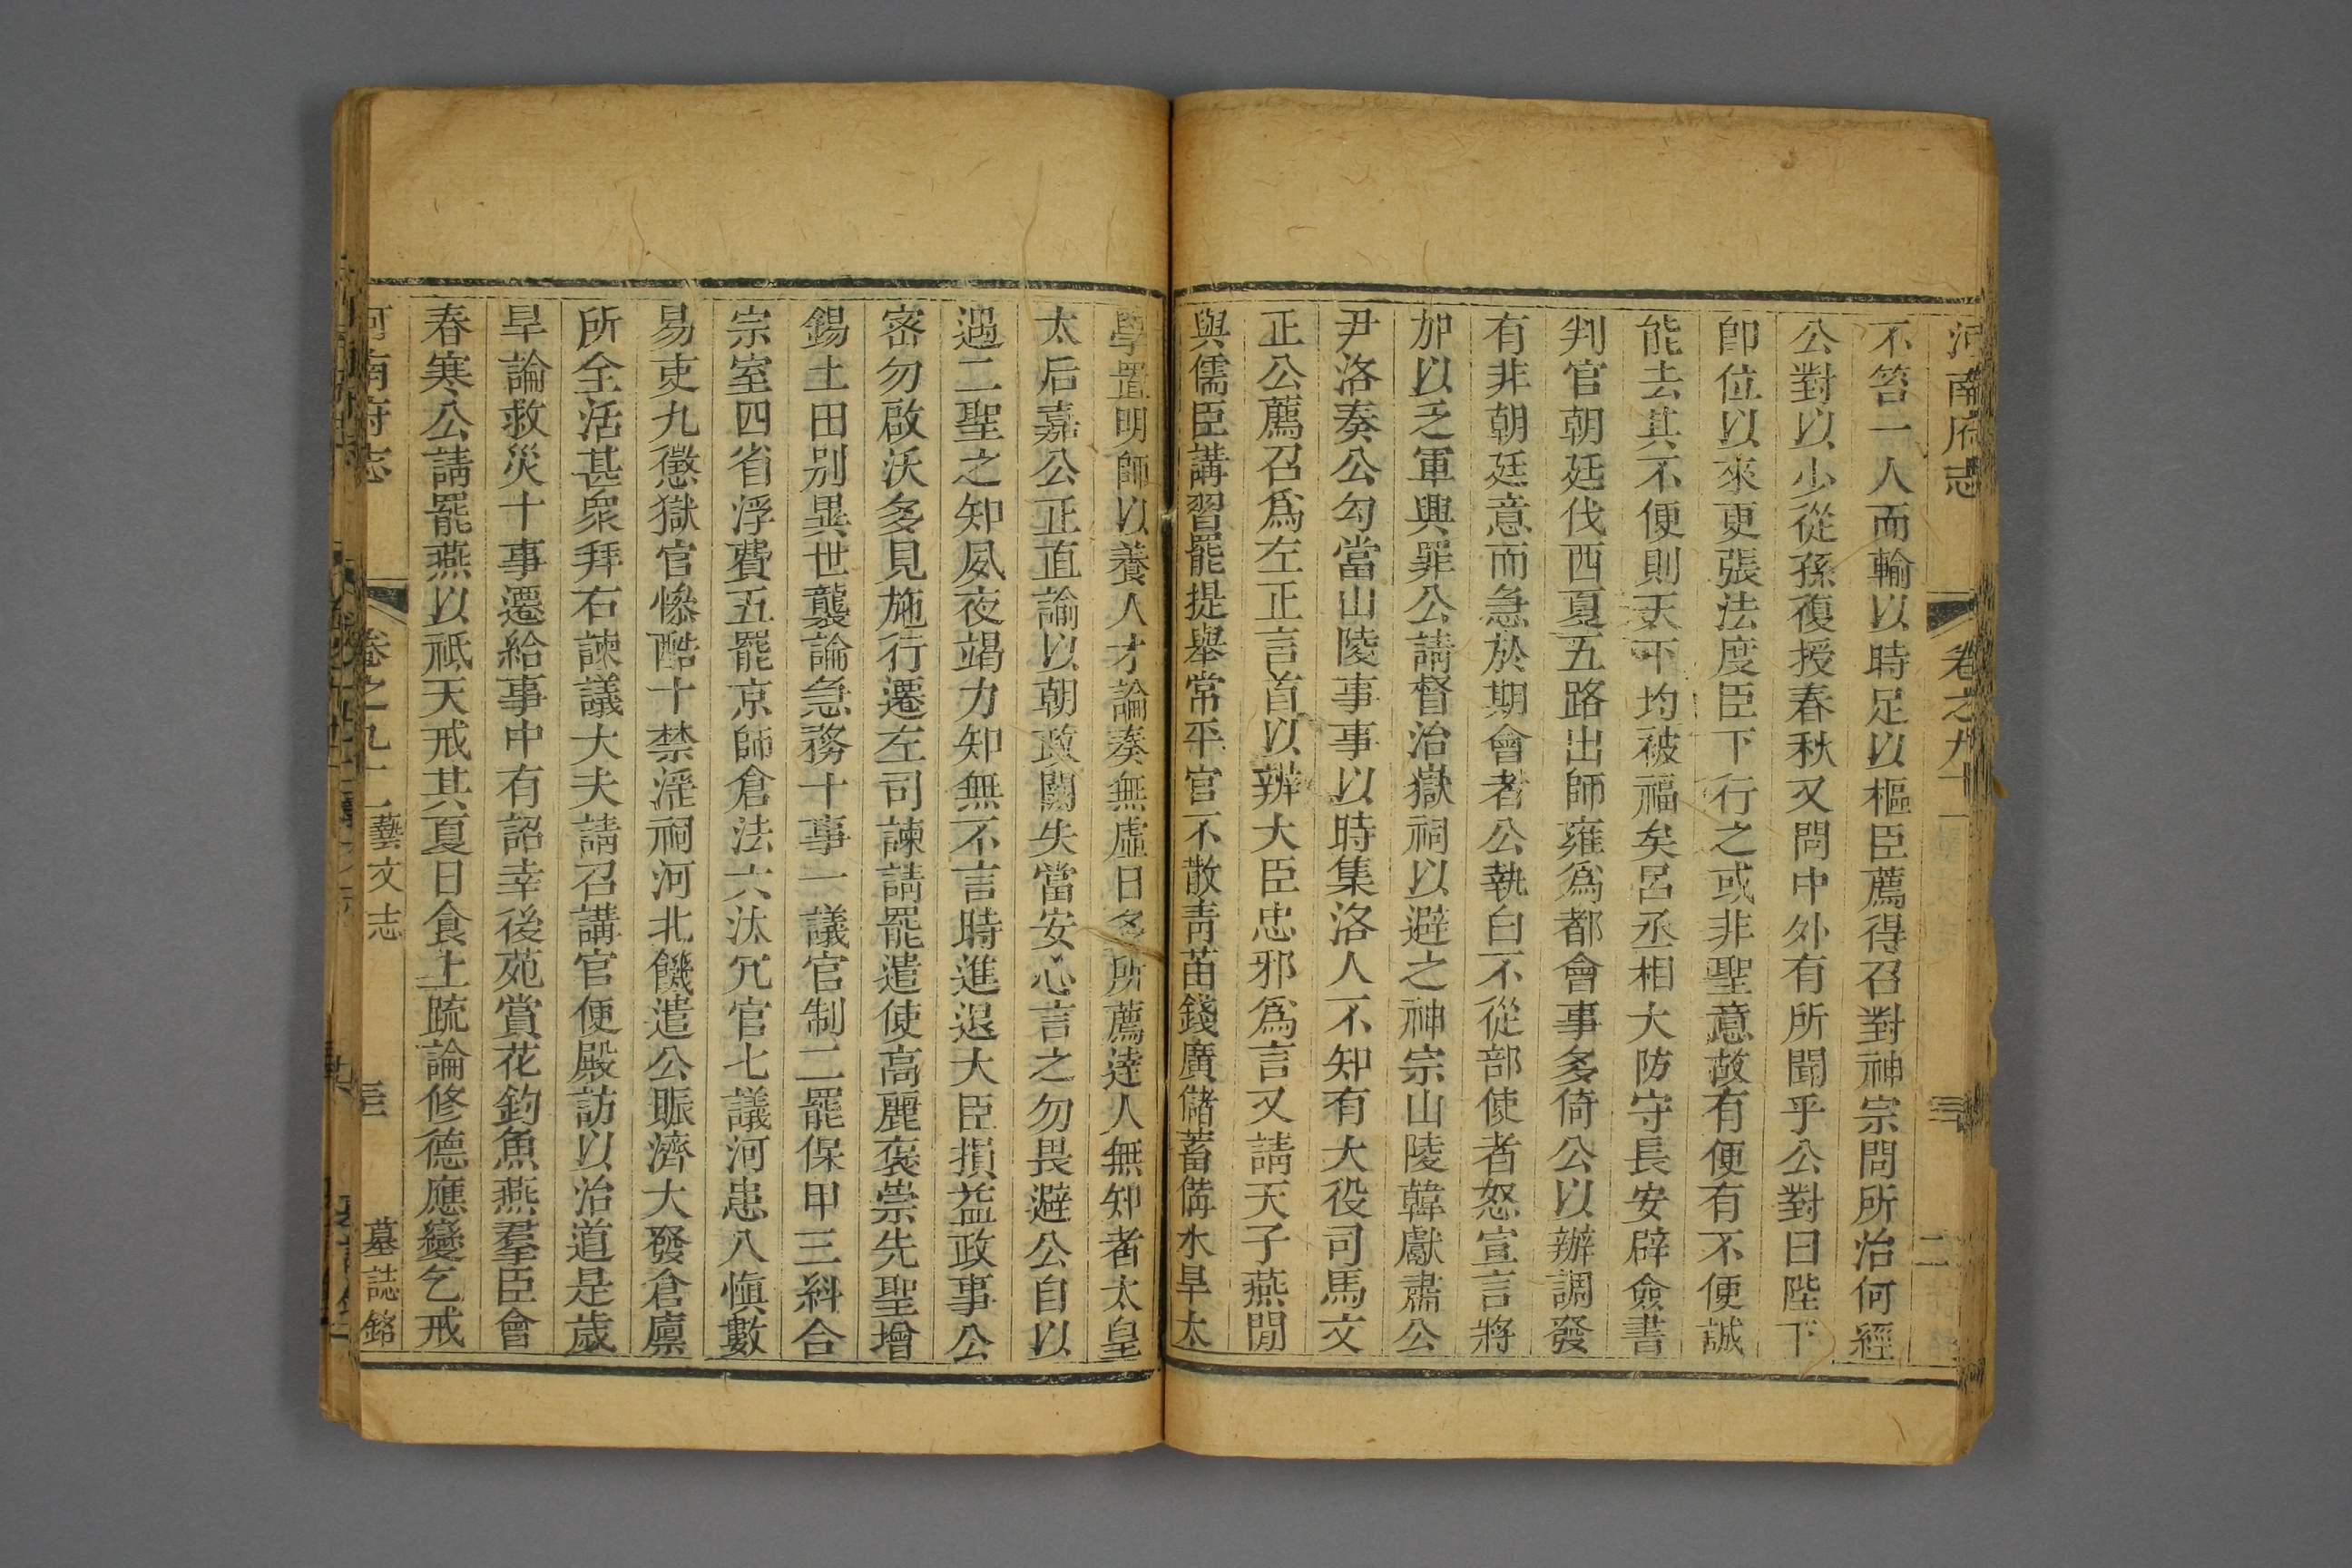 河南府志 卷之九十二 三 二
不笞一人而輸以時足以樞臣薦得召對神宗問所治何經
公對以少從孫復授春秋又問中外有所聞乎公對曰陛下
卽位以來更張法度臣下行之或非聖意故有便有不便誠
能去其不便則天下均被福矣呂丞相大防守長安辟僉書
判官朝廷伐西夏五路出師雍爲都會事多倚公以辦調發
有非朝廷意而急於期會者公執白不從部使者怒宣言將
加以乏軍興罪公請督治嶽祠以避之神宗山陵韓獻肅公
尹洛奏公勾當山陵事事以時集洛人不知有大役司馬文
正公薦召爲左正言首以辨大臣忠邪爲言又請天子燕閒
與儒臣講習罷提舉常平官不散青苗錢廣儲蓄備水旱太
學置明師以養人才論奏無虛日多所薦達人無知者太皇
太后嘉公正直諭以朝政闕失當安心言之勿畏避公自以
遇二聖之知夙夜竭力知無不言時進退大臣損益政事公
密勿啟沃多見施行遷左司諫請罷遣使高麗褒崇先聖增
錫土田別異世襲論急務十事一議官制二罷保甲三糾合
宗室四省浮費五罷京師倉法六汰冗官七議河患八愼數
易吏九懲獄官慘酷十禁淫祠河北饑遣公賑濟大發倉廩
所全活甚衆拜右諫議大夫請召講官便殿訪以治道是歲
旱論救災十事遷給事中有詔幸後苑賞花釣魚燕羣臣會
春寒公請罷燕以祗天戒其夏日食上疏論修德應變乞戒
河南府志 卷之九十二 藝文志 三 墓誌銘